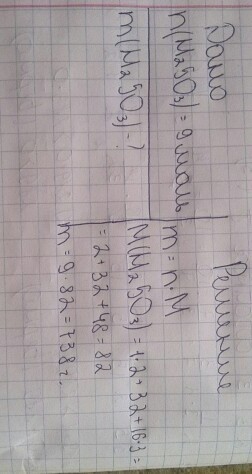 Дано
n(H₂SO₃) = 9 моль
m(H₂SO₃) - ?
Решение
m = n · M
M(H₂SO₃) = 1·2 + 32 + 16·3 =
= 2 + 32 + 48 = 82
m = 9 · 82 = 738 г.